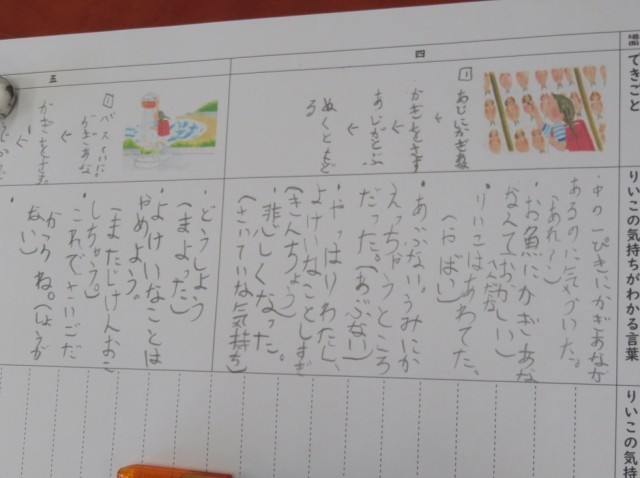 場面
できごと
りいこの気持ちがわかる言葉
りいこの気持
四
1
あじにかぎあな
↓
かぎをさす
↓
あじがとぶ
↓
ぬくともど
る
・中の一ぴきにかぎあなが
あるのに気づいた。
(あれ〜)
・お魚にかぎあな
なんておかしい)
・りいこはあわてた。
(やばい)
・あぶない。うみにか
えっちゃうところ
だった。(あぶない)
・やっぱりわたし、
よけいなことしすぎ
(きんちょう)
・悲しくなった。
(さいていな気持ち)
五
1
バスていに
かぎあな
↓
かぎをさす
↓
・どうしよう
(まよった)
・よけいなことは
やめよう。
(またじけんおこ
しちゃう。)
・これでさいごだ
かつ ね。(しょうが
ない)